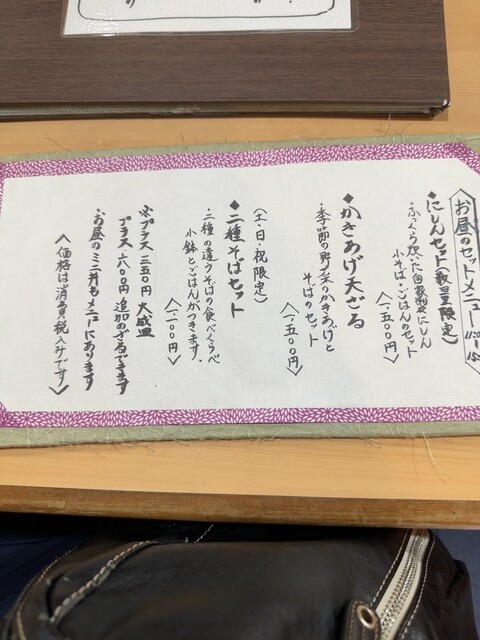 お昼のセットメニュー 11:00〜15:00
◆にしんセット(数量限定)
・ふっくら炊いた自家製にしん
小そば・ごはんのセット
〈一、五〇〇円〉
◆かきあげ天ざる
・季節の野菜のかきあげと
そばのセット
〈一、五〇〇円〉
(土・日・祝限定)
◆二種そばセット
・二種の違うそばの食べくらべ
小鉢とごはんがつきます。
〈一、一〇〇円〉
※プラス三五〇円 大盛
プラス六〇〇円 追加のざるできます
・お昼のミニ丼もメニューにあります
〈価格は消費税込みです〉